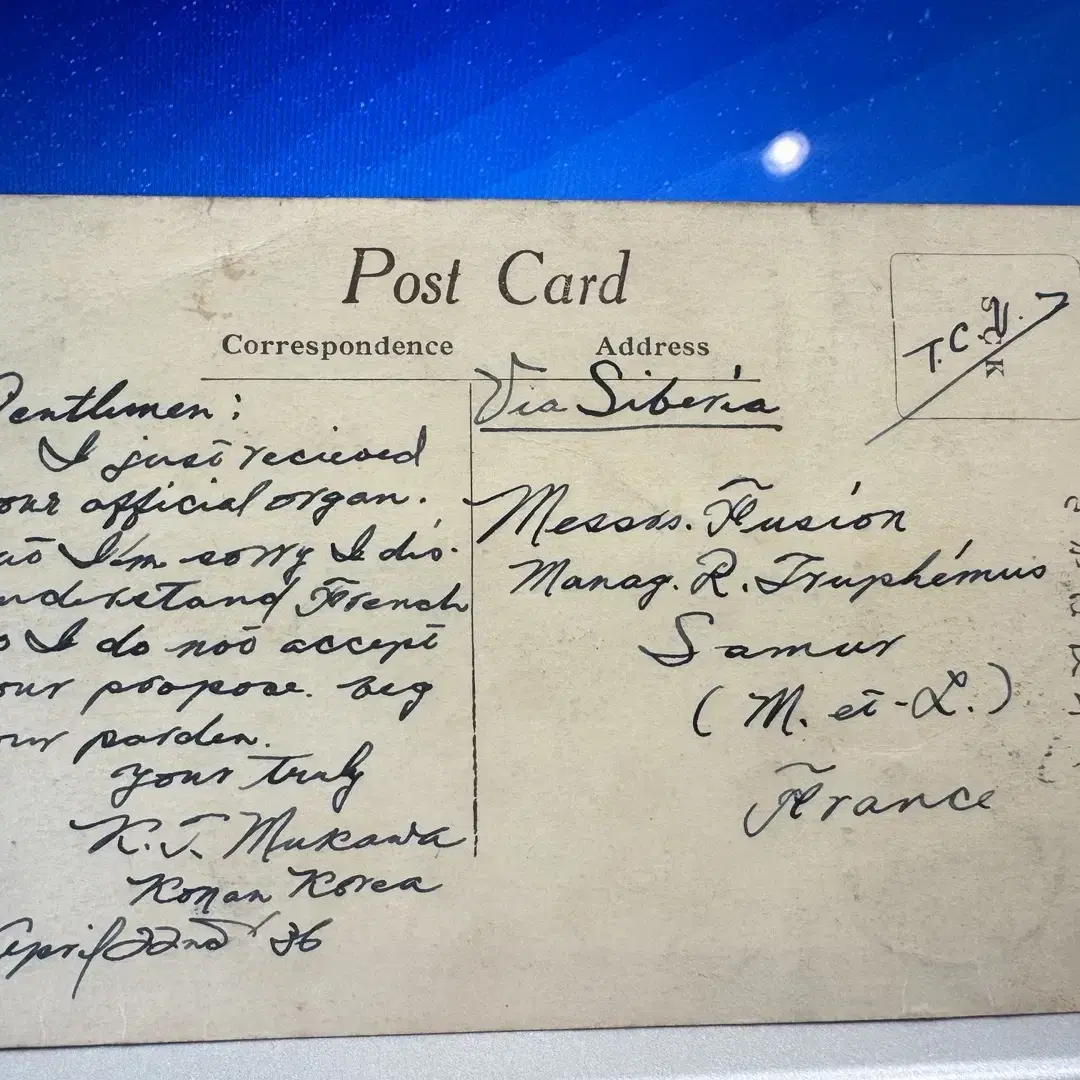 Post Card
Correspondence
Address
Gentlemen:
I just recieved
our official organ.
I'm sorry I dis.
understand French
I do not accept
our propose. beg
our parden.
your truly
K.J. Mukawa
Konan Korea
April 22nd '36
Via Siberia
Messrs. Flusión
Manag. R. Truphémus
Samur
(M. et-L.)
France
T.C.